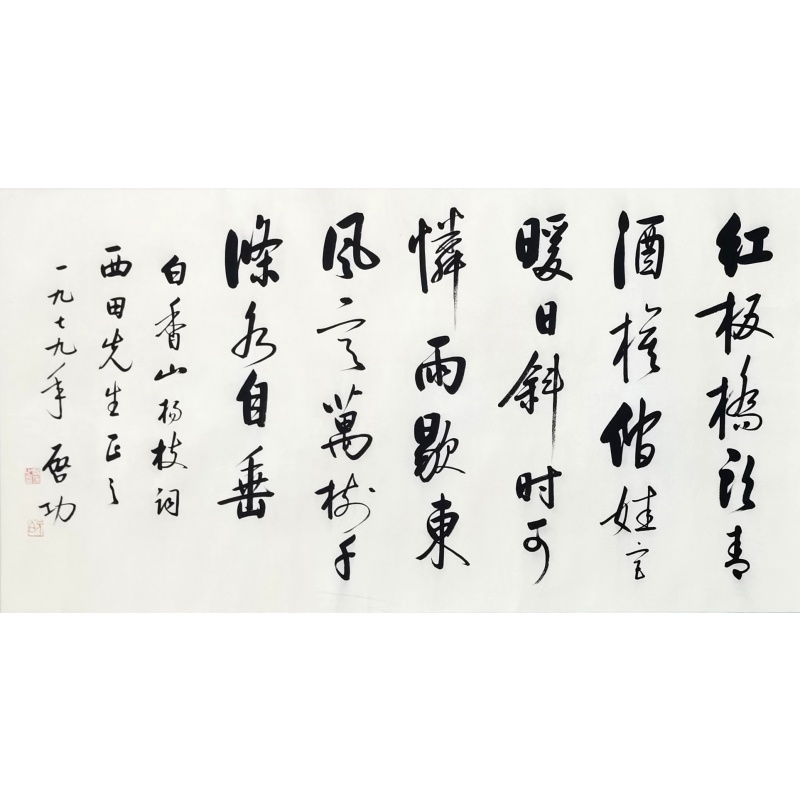 红板橋头青
酒旗館娃宫
暖日斜时可
憐雨歇東
風定萬树千
條各自垂
白香山杨枝词
西田先生正之
一九七九年 啓功